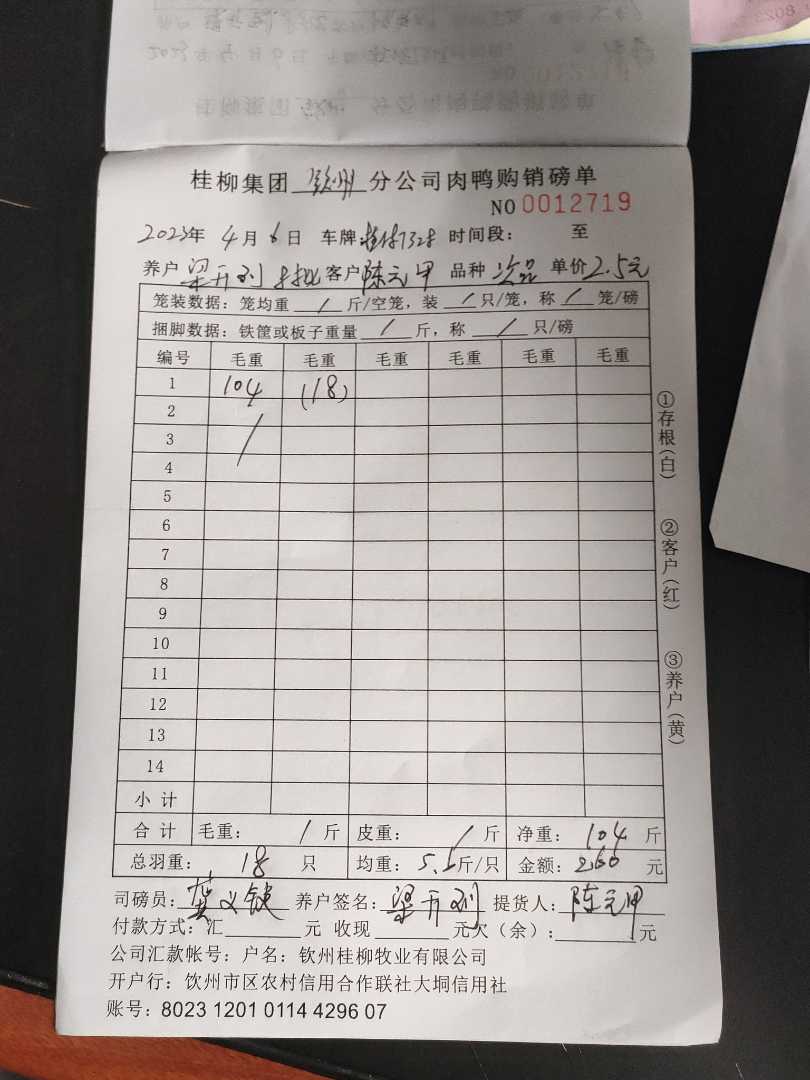 桂柳集团 钦州 分公司肉鸭购销磅单
NO 0012719
2023年 4月 6日 车牌: 7328 时间段: 至
养户 梁开烈 客户 陈元甲 品种 次品 单价 2.5元
笼装数据: 笼均重 / 斤/空笼, 装 / 只/笼, 称 / 笼/磅
捆脚数据: 铁筐或板子重量 / 斤, 称 / 只/磅
编号 毛重 毛重 毛重 毛重 毛重 毛重
1 104 (18)
2
3 /
4
5
6
7
8
9
10
11
12
13
14
小计
合计 毛重: / 斤 皮重: / 斤 净重: 104 斤
总羽重: 18 只 均重: 5. 斤/只 金额: 260 元
司磅员: 义 养户签名: 梁开烈 提货人: 陈元甲
付款方式: 汇 元 收现 元欠(余): 元
公司汇款帐号: 户名: 钦州桂柳牧业有限公司
开户行: 钦州市区农村信用合作联社大垌信用社
账号: 8023 1201 0114 4296 07
①存根(白)
②客户(红)
③养户(黄)